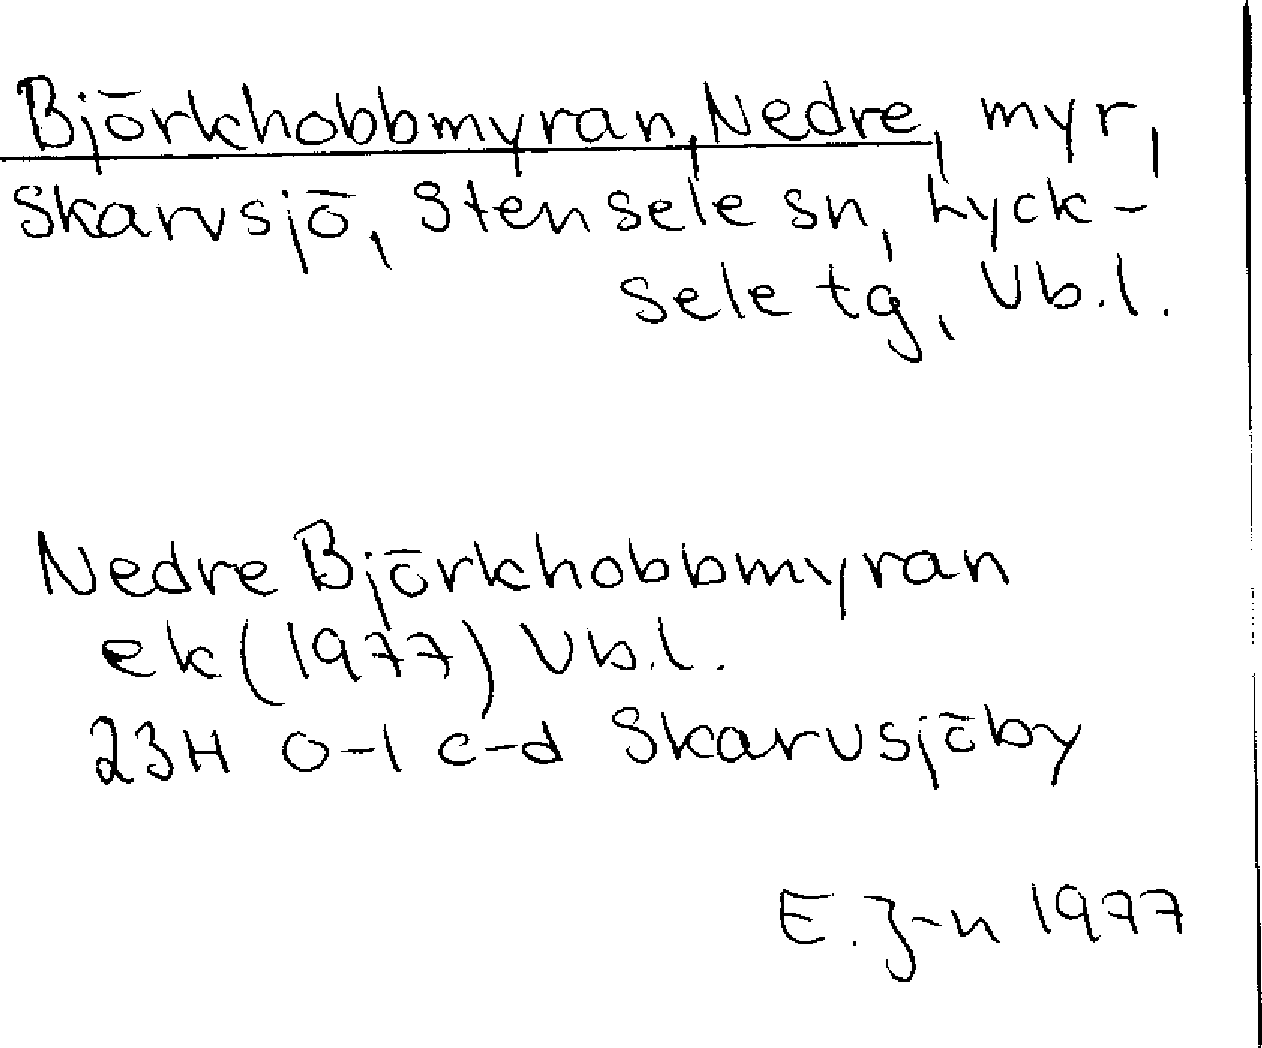 Björkhobbmyran, Nedre, myr,
Skarvsjö, Stensele sn, Lyck-
sele tg, Vb.l.
Nedre Björkhobbmyran
ek (1977) Vb.l.
23H 0-1 c-d Skarvsjöby
E. J-n 1977